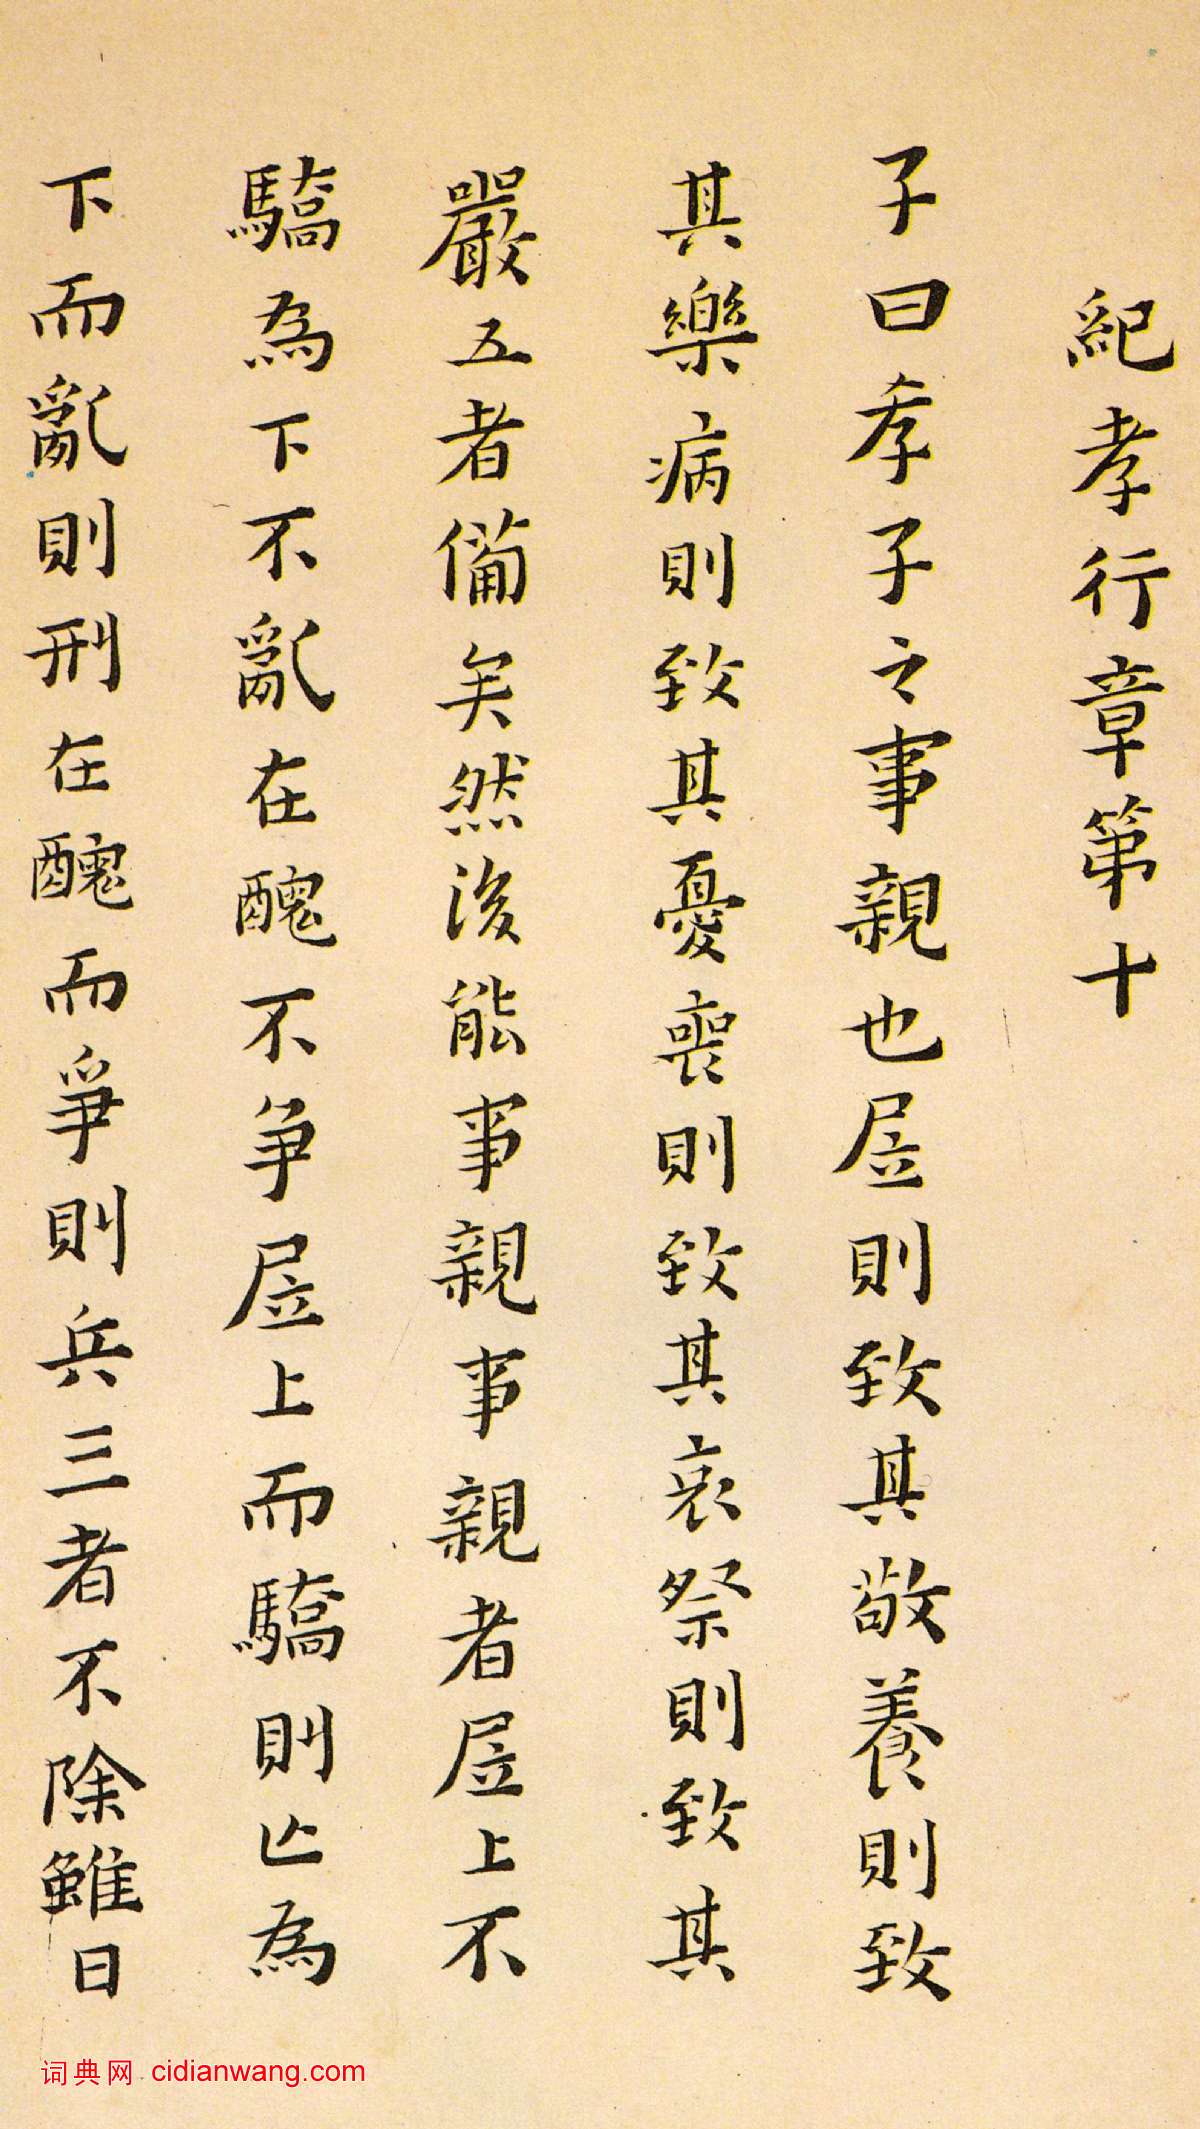 紀孝行章第十
子曰孝子之事親也居則致其敬養則致
其樂病則致其憂喪則致其哀祭則致其
嚴五者備矣然後能事親事親者居上不
驕為下不亂在醜不争居上而驕則亡為
下而亂則刑在醜而爭則兵三者不除雖日
词典网 cidianwang.com